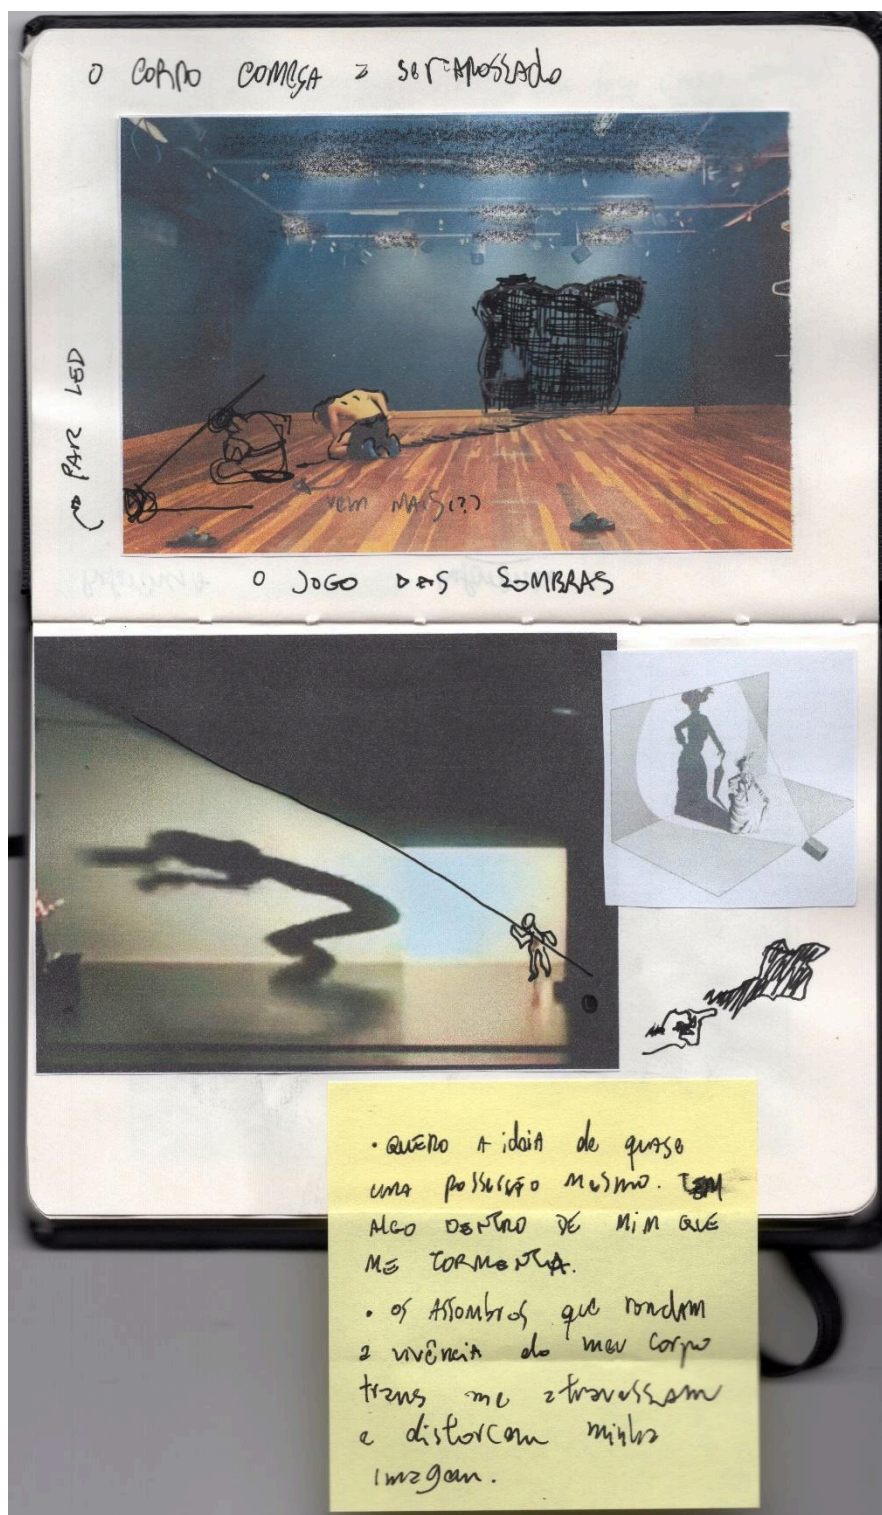 O CORPO COMEÇA a ser APOSSADO
PAR LED
vem MAIS(?)
O JOGO DAS SOMBRAS
• QUERO A ideia de quase
uma possessão mesmo. TEM
ALGO DENTRO DE MIM QUE
ME TORMENTA.
• os Assombros que rondam
a vivência do meu corpo
trans me atravessam
e distorcem minha
imagem.